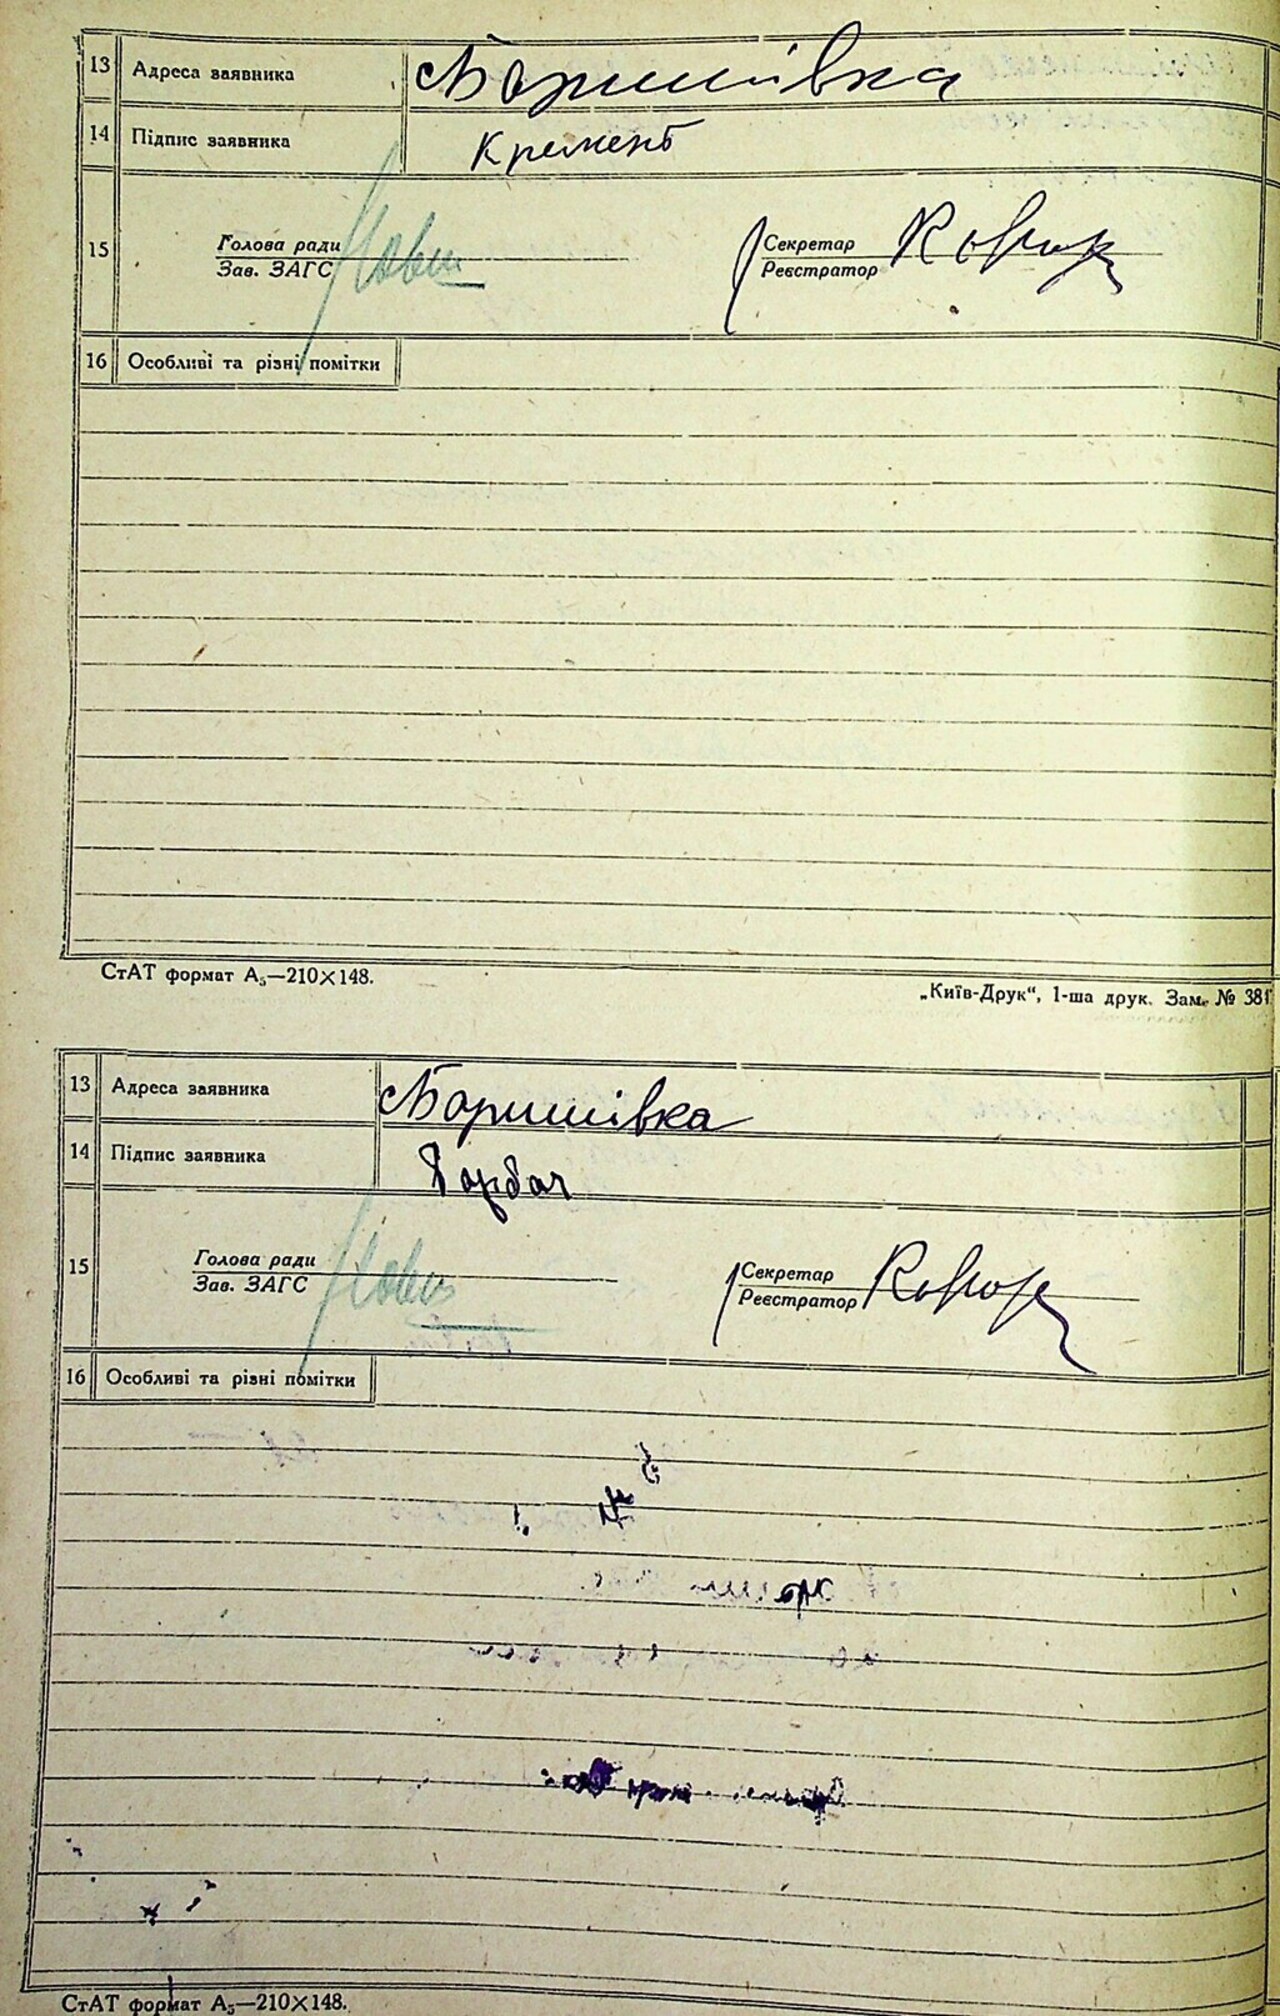 13 Адреса заявника Боришівка
14 Підпис заявника Кремень
15 Голова ради
Зав. ЗАГС
Секретар
Реєстратор
16 Особливі та різні помітки
СтАТ формат А₅—210×148.
„Київ-Друк“, 1-ша друк. Зам. № 381
13 Адреса заявника Боришівка
14 Підпис заявника Горбач
15 Голова ради
Зав. ЗАГС
Секретар
Реєстратор
16 Особливі та різні помітки
СтАТ формат А₅—210×148.